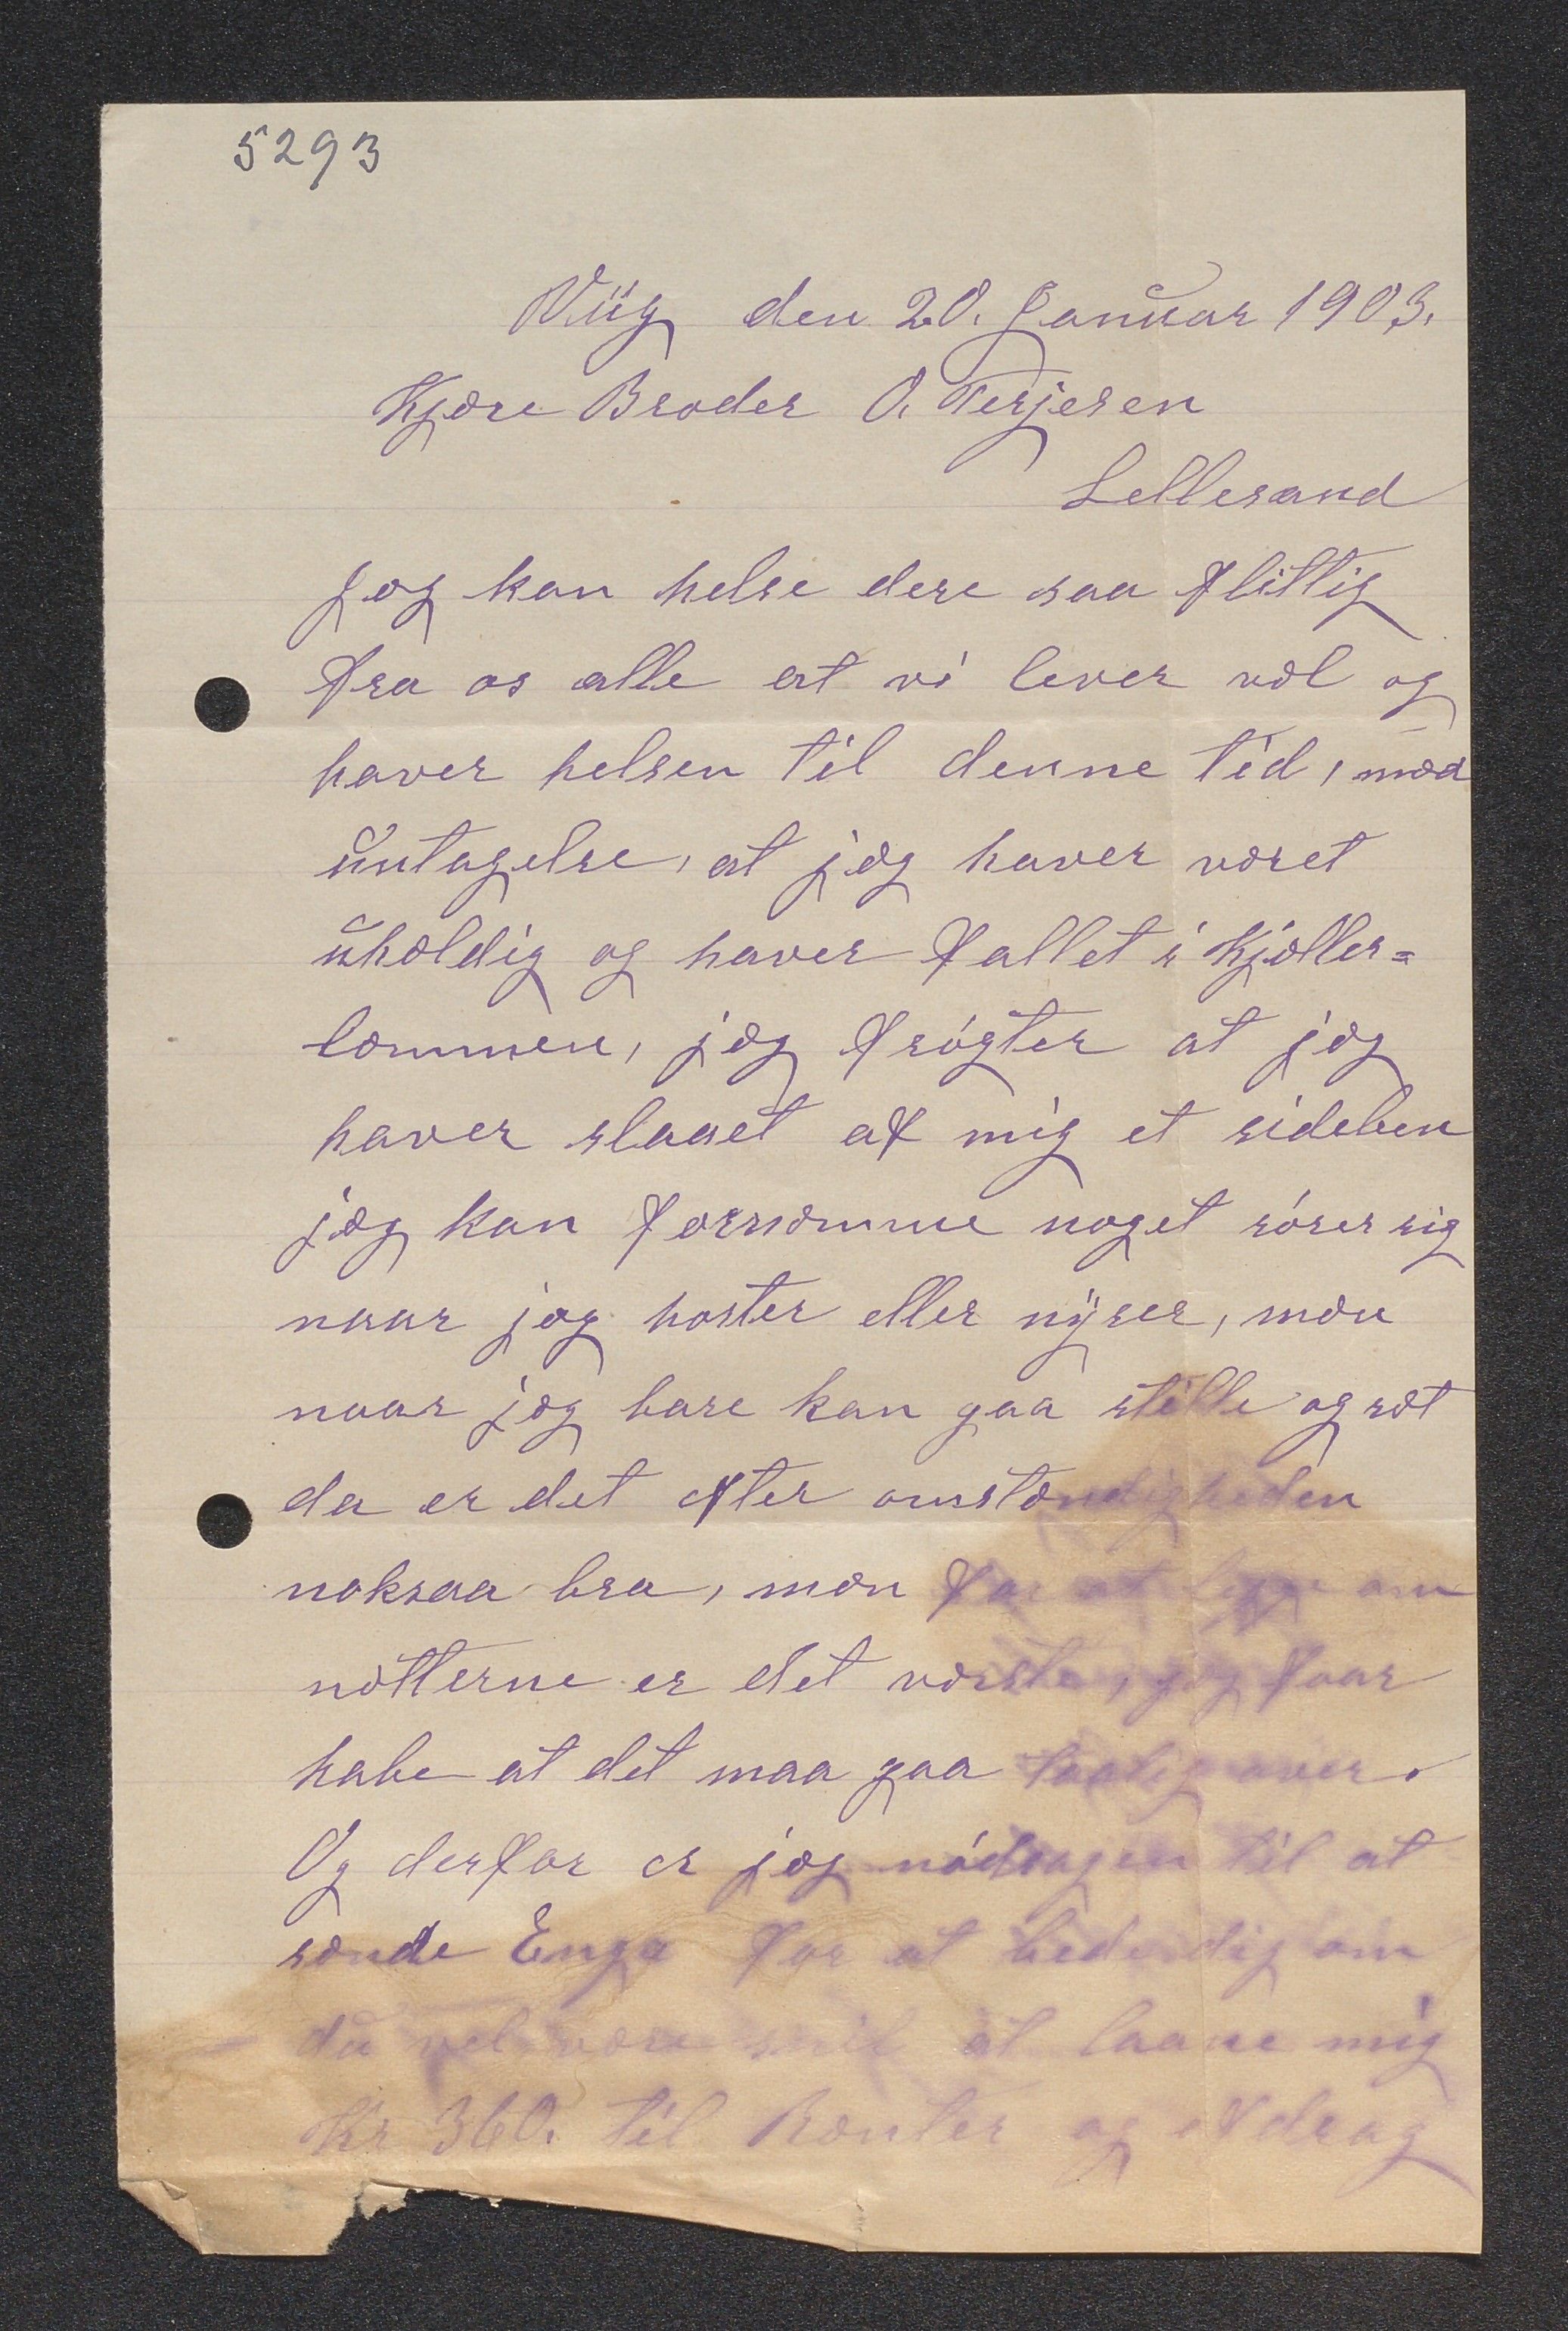 5293
Viig den 20. Januar 1903.
Kjære Broder O. Terjesen
Lellesand
Jæg kan helse dere saa flittig
fra os alle at vi lever væl og
haver helsen til denne tid, mæd
untagelse, at jæg haver været
uhældig og haver fallet i Kjæller=
læmmen, jæg frógter at jæg
haver slaaet af mig et sideben
jæg kan fornæmme noget rórer sig
naar jæg hoster eller nÿser, mæn
naar jæg bare kan gaa stille og ræt
da er det efter omstændigheden
noksaa bra, mæn for at ligge om
nætterne er det værste, jæg faar
habe at det maa gaa over.
Og derfor er jæg nódragen til at
sænde Enga for at bede dig om
du vel være snil at laane mig
Kr 360. til Rænter og Afdrag